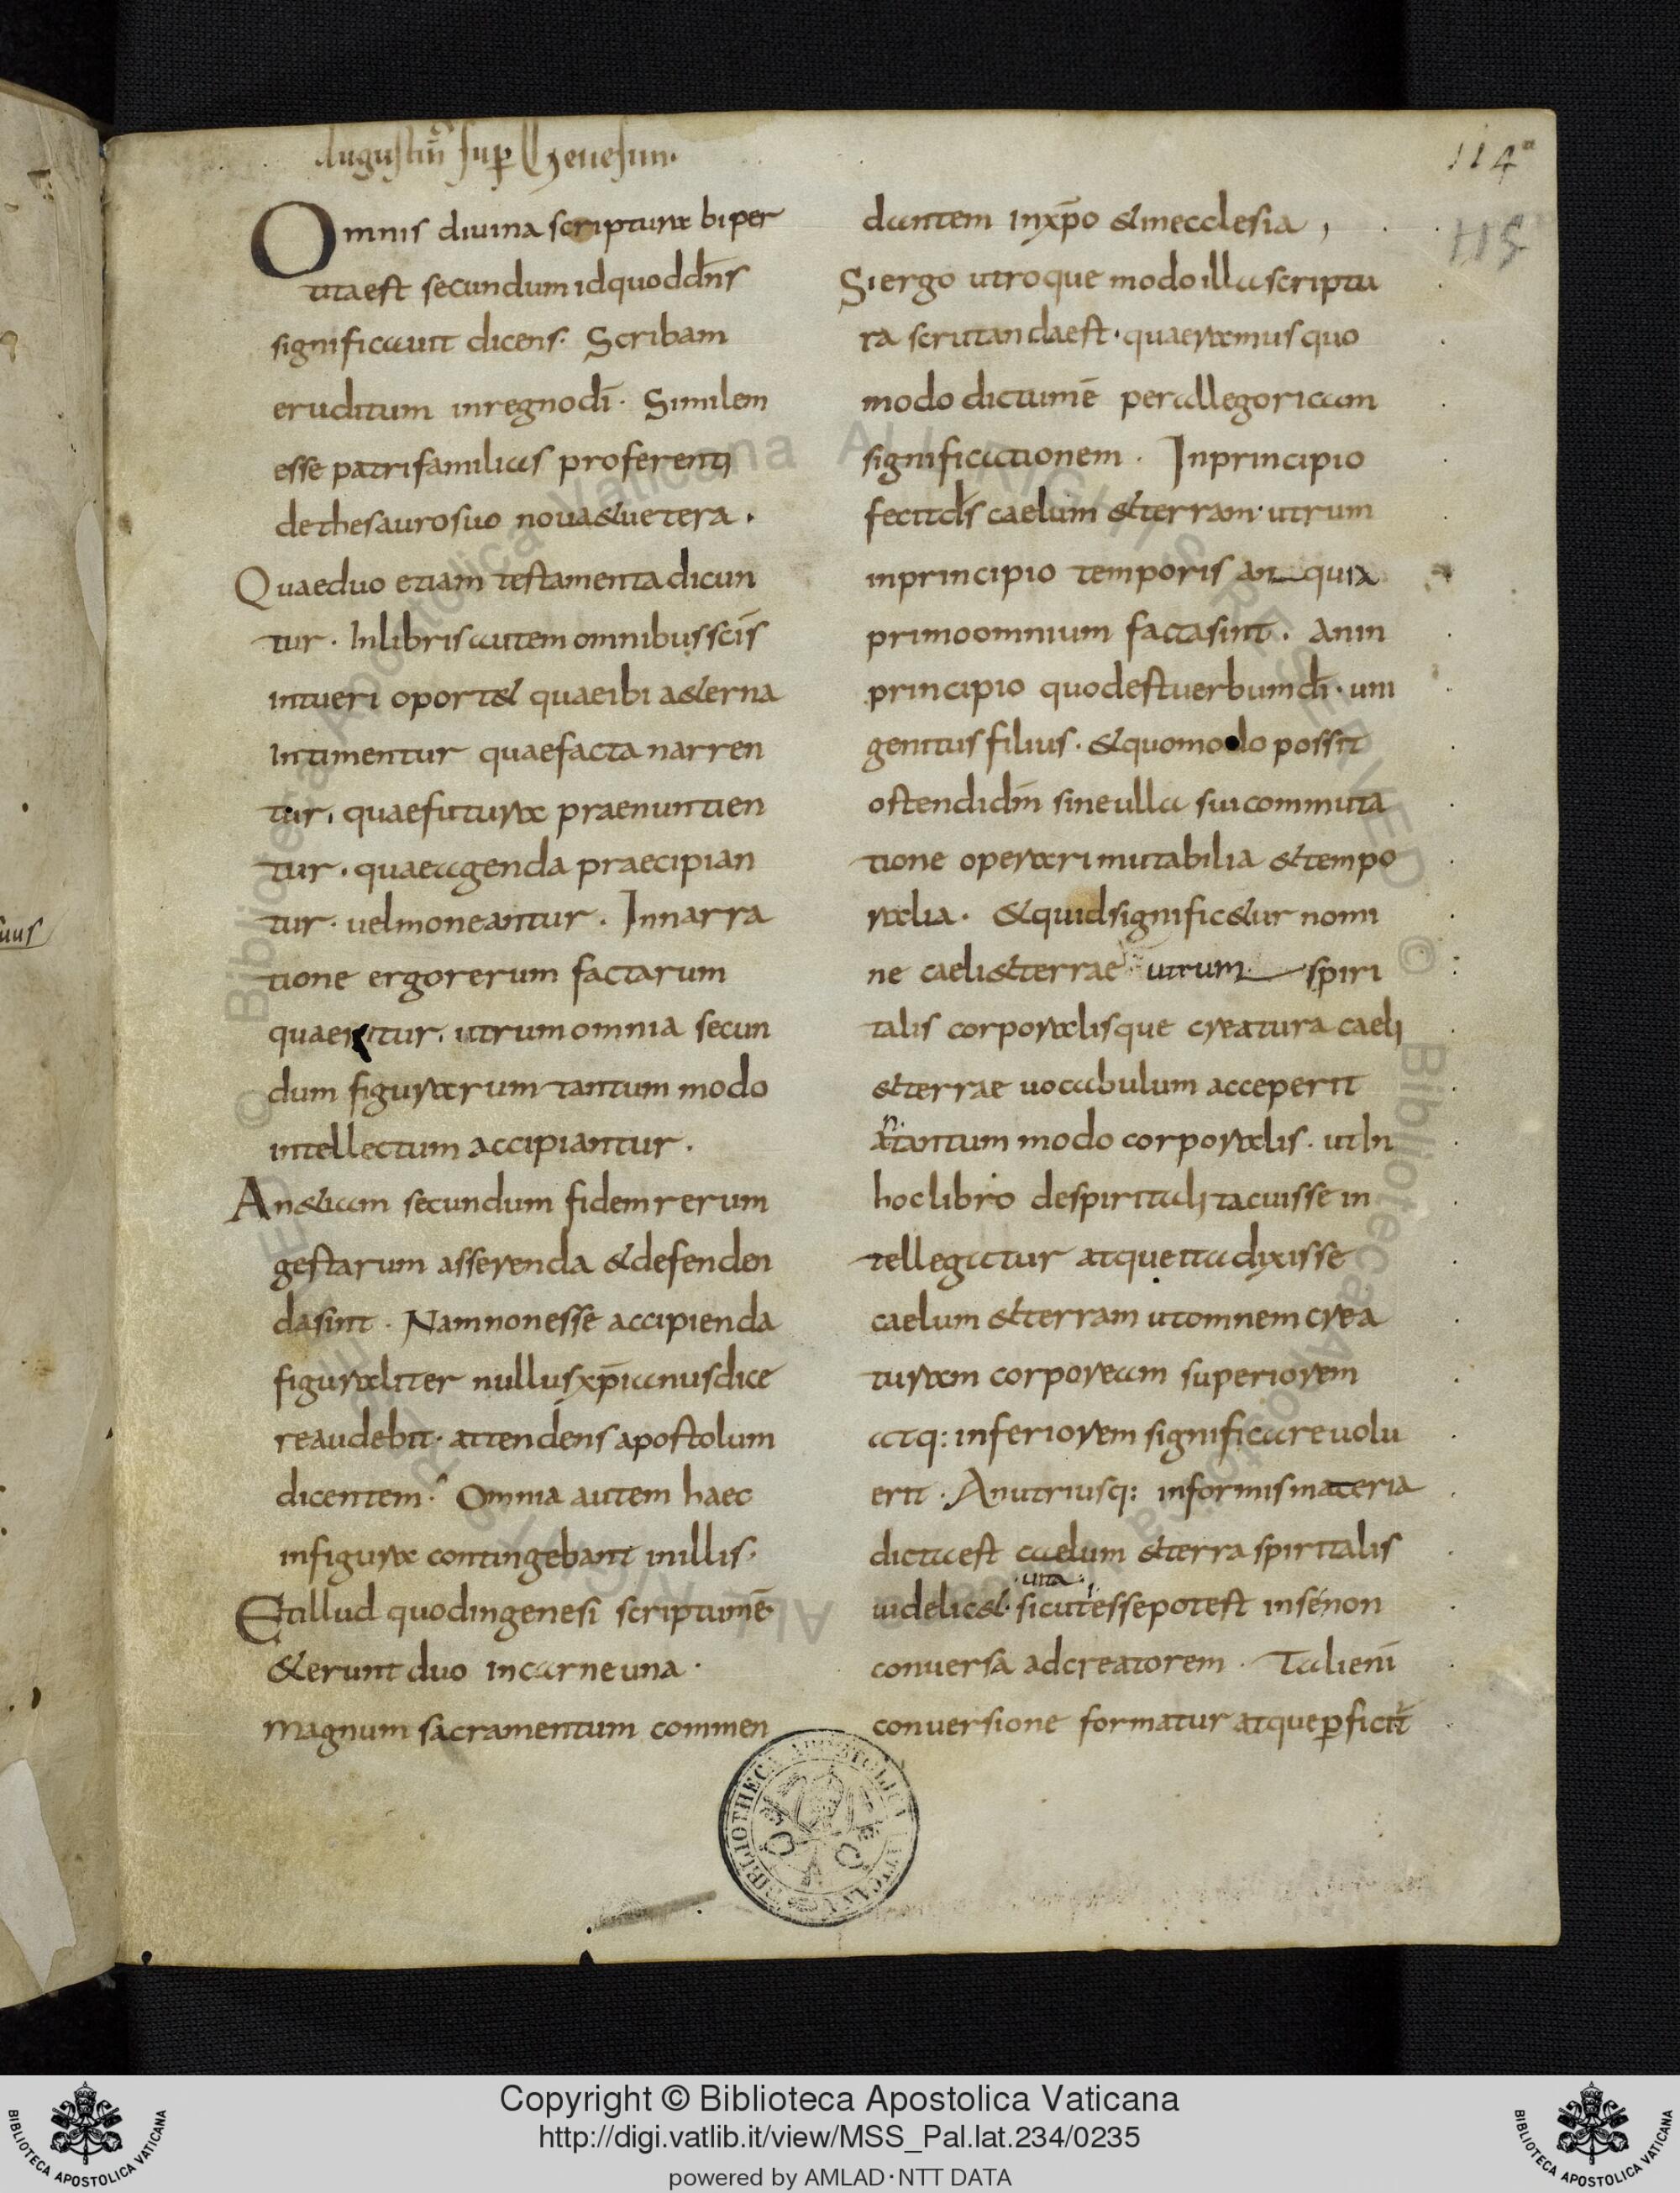 Augustin̄ sup Genesim.
114ª
115
Omnis diuina scriptura biper
tita est secundum id quod dn̄s
significauit dicens. Scribam
eruditum in regno dī. Similem
esse patrifamilias proferenti
de thesauro suo noua & uetera.
Quae duo etiam testamenta dicun
tur. In libris autem omnibus scīs
intueri oport& quae ibi a&erna
intimentur quae facta narren
tur, quae futura praenuntien
tur. quae agenda praecipian
tur. uel moneantur. In narra
tione ergo rerum factarum
quaeritur. utrum omnia secun
dum figurarum tantum modo
intellectum accipiantur.
An &iam secundum fidem rerum
gestarum asserenda & defenden
da sint. Nam non esse accipienda
figuraliter nullus xp̄ianus dice
re audebit. attendens apostolum
dicentem. Omnia autem haec
in figura contingebant in illis.
Et illud quod in genesi scriptum ē
& erunt duo in carne una.
magnum sacramentum commen
dantem in xp̄o & in ecclesia,
Si ergo utroque modo illa scriptu
ra scrutanda est. quaeramus quo
modo dictum ē per allegoricam
significationem. In principio
fecit ds̄ caelum & terram. utrum
in principio temporis an quia
primo omnium facta sint. an in
principio quod est uerbum dī. uni
genitus filius. & quomodo possit
ostendi dm̄ sine ulla sui commuta
tione operari mutabilia & tempo
ralia. & quid signific&ur nomi
ne caeli & terrae utrum spiri
talis corporalisque creatura caeli
& terrae uocabulum acceperit
an tantum modo corporalis. ut in
hoc libro de spiritali tacuisse in
tellegatur atque ita dixisse
caelum & terram ut omnem crea
turam corpoream superiorem
atq: inferiorem significare uolu
erit. An utriusq: informis materia
dicta est caelum & terra spiritalis
uita
uidelic&. sicut esse potest in se non
conuersa ad creatorem. Tali enī
conuersione formatur atque ꝑficit̄
Copyright © Biblioteca Apostolica Vaticana
http://digi.vatlib.it/view/MSS_Pal.lat.234/0235
powered by AMLAD·NTT DATA
BIBLIOTECA APOSTOLICA VATICANA
BIBLIOTECA APOSTOLICA VATICANA